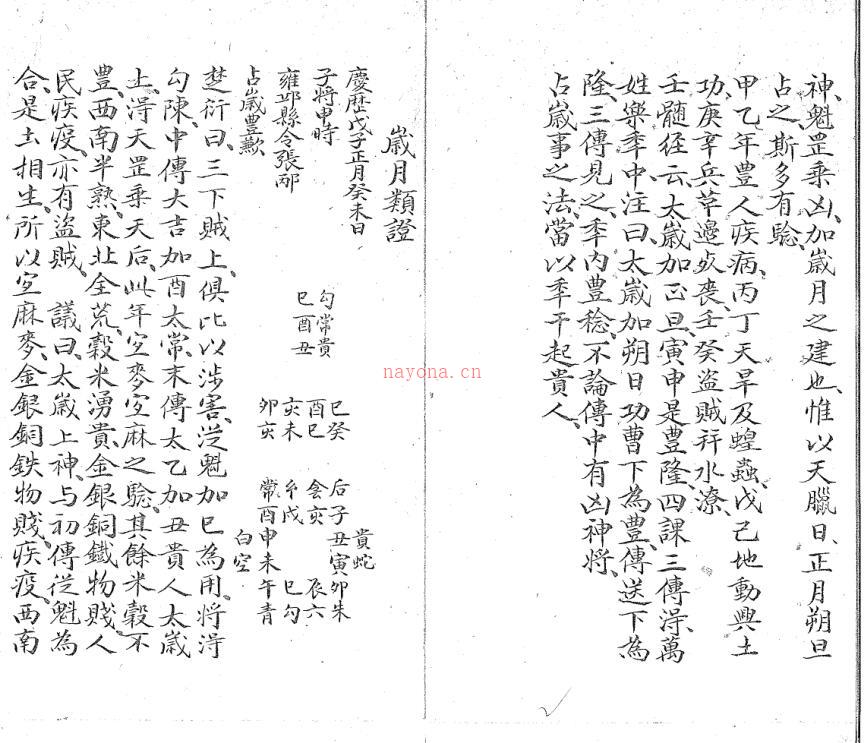 神魁罡乗凶加嵗月之建也惟以天臘日正月朔旦
占之斯多有驗
甲乙年豊人疾病丙丁天旱及蝗蟲戊己地動興土
功庚辛兵革邊戎喪壬癸盗賊并水潦
壬髓経云太嵗加正旦寅申是豊隆四課三傳淂萬
姓樂季中注曰太嵗加朔日功曹下為豊傳送下為
隆三傳見之季内豊稔不論傳中有凶神将
占嵗事之法當以季干起貴人
嵗月類證
慶歴戊子正月癸未日
子将申時
雍邱縣令張邴
占嵗豊歉
勾常貴
巳酉丑
巳癸
酉巳
亥未
卯亥
貴蛇
后子丑寅卯朱
侌亥 辰六
玄戌 巳勾
常酉申未午青
白空
楚衍曰三下賊上俱比以渉害従魁加巳為用将淂
勾陳中傳大吉加酉太常末傳太乙加丑貴人太嵗
上淂天罡乗天后此年宜麥宜麻之驗其餘米糓不
豊西南半熟東北全荒糓米湧貴金銀銅鐵物賤人
民疾疫亦有盗賊 議曰太嵗上神与初傳従魁為
合是土相生所以宜麻麥金銀銅鉄物賤疾疫西南
nayona.cn